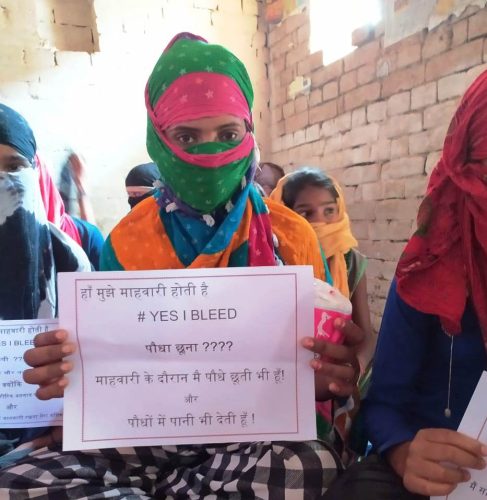 हाँ मुझे माहवारी होती है
# YES I BLEED
पौधा छूना ????
माहवारी के दौरान मै पौधे छूती भी हूँ!
और
पौधों में पानी भी देती हूँ !
माहवारी होती है
YES I BLEED
??
क्योंकि
और